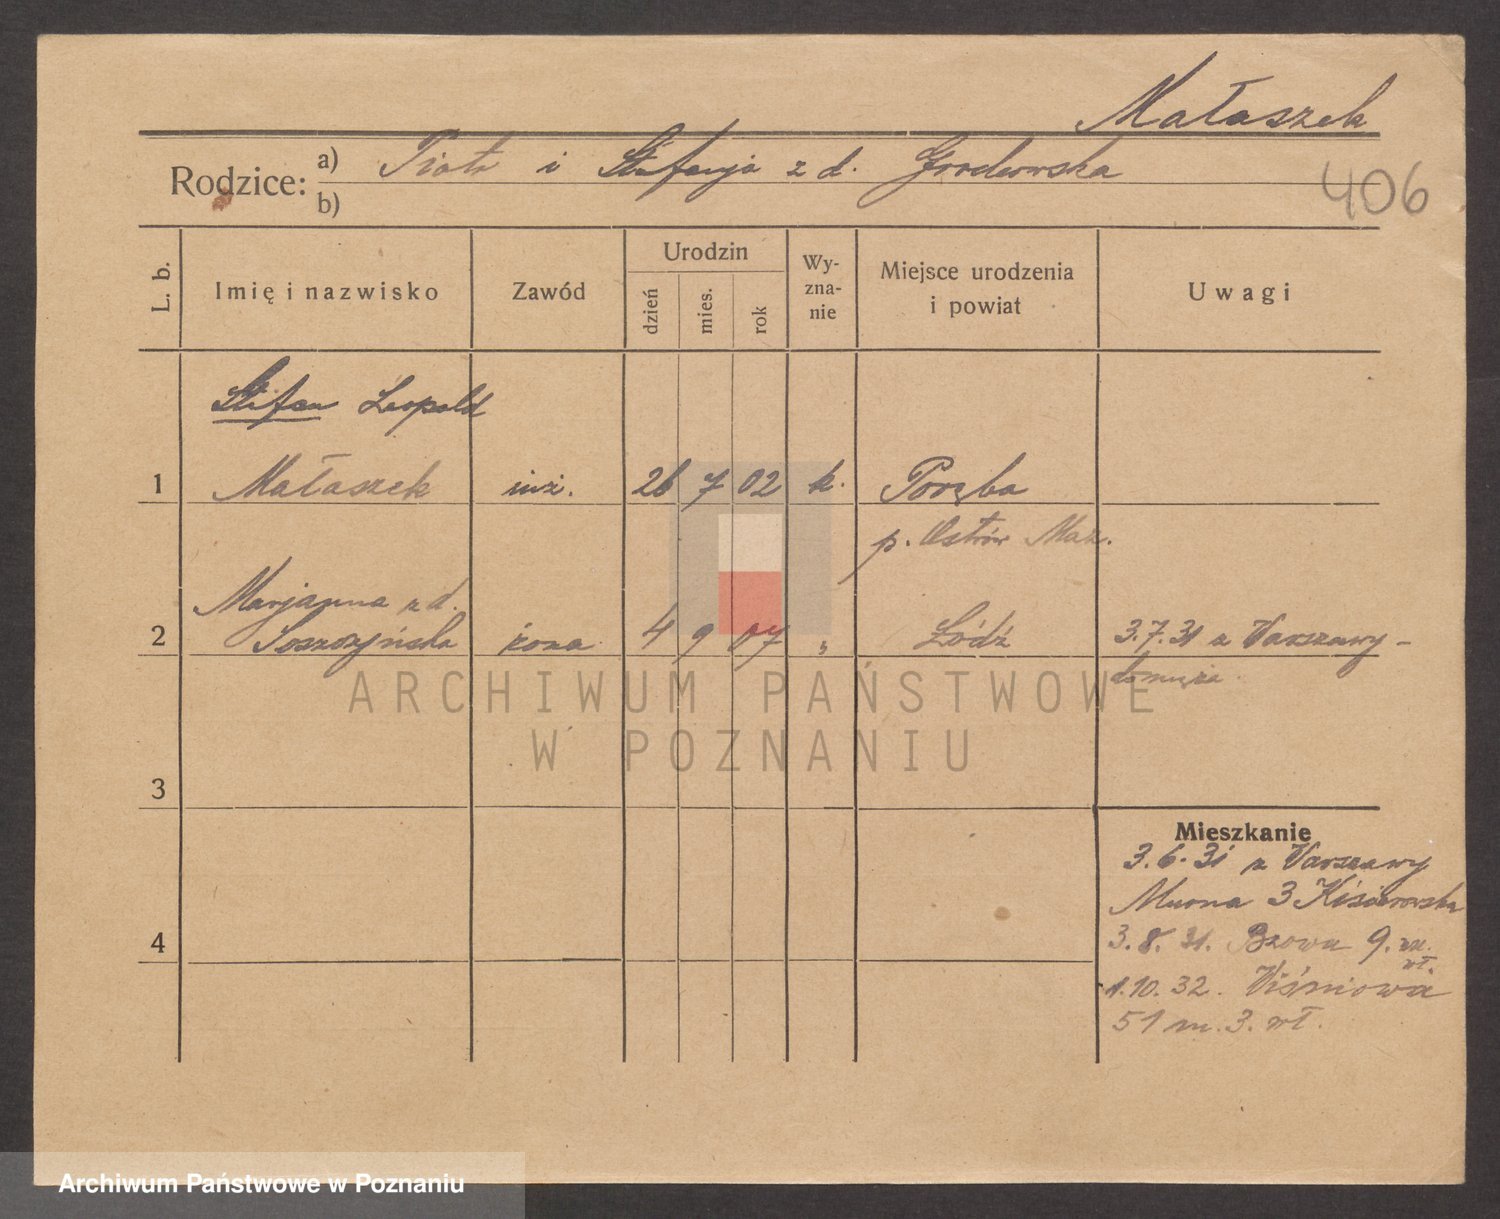 Małaszek
406
Rodzice: a) Piotr i Stefanja z d. Grodowska
b)
L. b.
Imię i nazwisko
Zawód
Urodzin
dzień
mies.
rok
Wy-
zna-
nie
Miejsce urodzenia
i powiat
Uwagi
Stefan Leopold
1 Małaszek inż. 26 7 02 k. Poręba
p. Ostrów Maz.
Marjanna z d.
2 Soszczyńska żona 4 9 07 „ Łódź 3.7.31 z Warszawy -
do męża
3
4
Mieszkanie
3.6.31 z Warszawy
Murna 3
3.8.31. Bzowa 9. m.
wł.
1.10.32. Wiśniowa
51 m. 3. wł.
ARCHIWUM PAŃSTWOWE
W POZNANIU
Archiwum Państwowe w Poznaniu